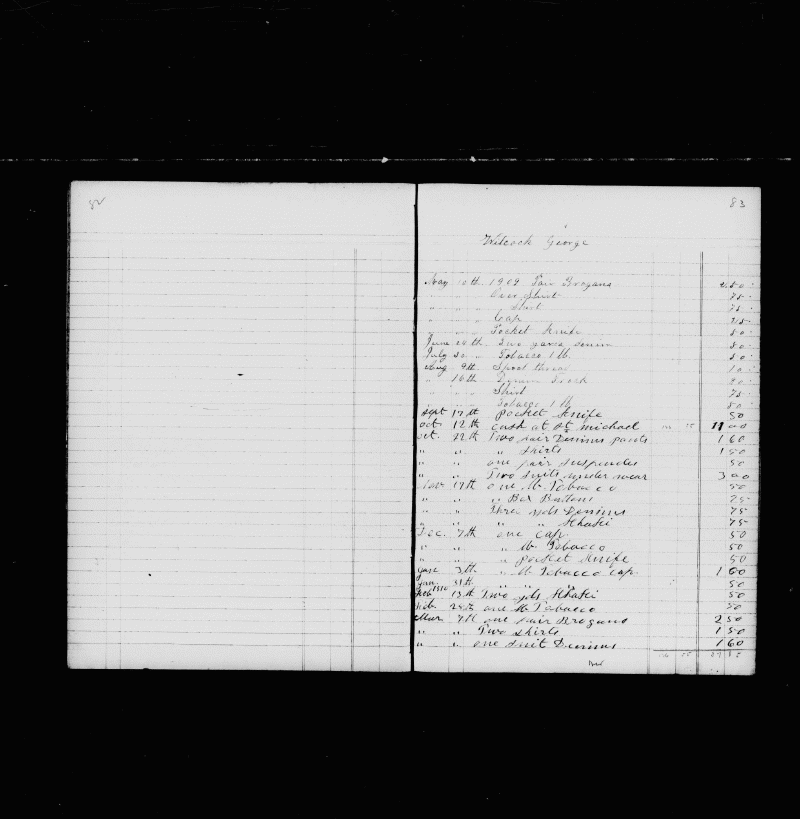 82
83
Wilcock George
May 10th 1909 Pair Brogans 2 50
" " " Over Shirt 75
" " " " Shirt 75
" " " Cap 25
" " " Pocket Knife 50
June " Two yards denim 50
July 30 " Tobacco 1 lb 50
Aug 9th Spool thread 10
" 16th
" " Shirt 75
" " Tobacco 1 lb 50
Sept 17th Pocket Knife 50
Oct 12th cash at St Michael 11 00
Oct. 22th Two pair Denims pants 1 60
" " " shirts 1 50
" " one pair suspendes 50
" " Two suits under wear 3 00
Nov 17th one lb Tobacco 50
" " " Box Buttons 25
" " Three yds Denims 75
" " " " Khakie 75
Dec. 7th one Cap 50
" " " lb Tobacco 50
" " " pocket Knife 50
Jan 3th " lb Tobacco cap 1 00
Jan. 31th " " " 50
Feb 1910 13th Two yds Khakie 50
Feb. one lb Tobacco 50
Mar 7th one pair Brogans 2 50
" " Two shirts 1 50
" " one suit Denims 1 60